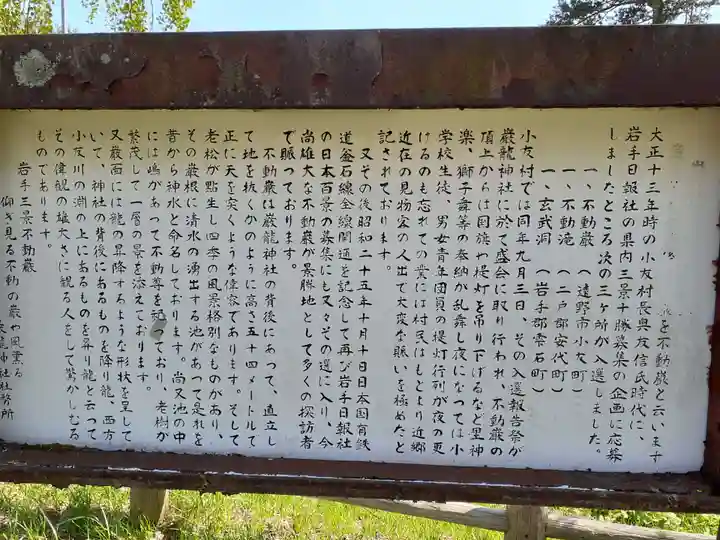 を不動巌と云います
大正十三年時の小友村長奥友信氏時代に、
岩手日報社の県内三景十勝募集の企画に応募
しましたところ次の三ヶ所が入選しました。
一、不動巌 (遠野市小友町)
一、不動滝 (二戸郡安代町)
一、玄武洞 (岩手郡雫石町)
小友村では同年九月三日、その入選報告祭が
巌龍神社に於て盛会に取り行われ、不動巌の
頂上からは国旗や提灯を吊り下げるなど里神
楽、獅子舞等の奉納が乱舞し夜になっては小
学校生徒、男女青年団員の提灯行列が夜の更
けるのも忘れての賞には村民はもとより近郷
近在の見物客の人出で大変な賑いを極めたと
記されております。
又その後昭和二十五年十月十日日本国有鉄
道釜石線全線開通を記念して再び岩手日報社
の日本百景の募集にも又々その選に入り、今
尚雄大な不動巌が景勝地として多くの探訪者
で賑っております。
不動巌は巌龍神社の背後にあって、直立し
て地を抜くかのように高さ五十四メートルて
正に天を突くような偉容であります。そして
老松が點生し四季の風景格別なものがあり、
その巌根に清水の湧出する池があって是れを
昔から神水と命名しております。尚又池の中
には嶋があって不動尊を祀っており、老樹が
繁茂して一層の景を添えております。
又巌面には龍の昇降するような形状を呈して
いて、神社の背後にあるものを降り龍、西方
小友川の淵の上にあるものを昇り龍と云って
その偉観の雄大さに観る人をして驚かしむる
ものであります。
岩手三景不動巌
仰ぎ見る不動の巌や風薫る
巌龍神社社務所